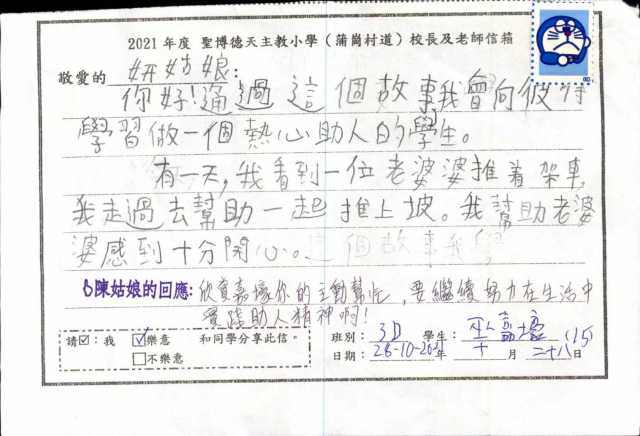 2021年度 聖博德天主教小學(蒲崗村道)校長及老師信箱
敬愛的 姑娘:
你好!通過這個故事我會向彼得
學習做一個熱心助人的學生。
有一天,我看到一位老婆婆推着架車,
我走過去幫助一起推上坡。我幫助老婆
婆感到十分開心。這個故事我學
陳姑娘的回應:欣賞嘉壕你的主動幫忙,要繼續努力在生活中
實踐助人精神啊!
請☑:我 ☑樂意 和同學分享此信。
□不樂意
班別: 3D 學生: 嘉壕 (15)
日期: 28-10-2021年 十 月 二十八 日